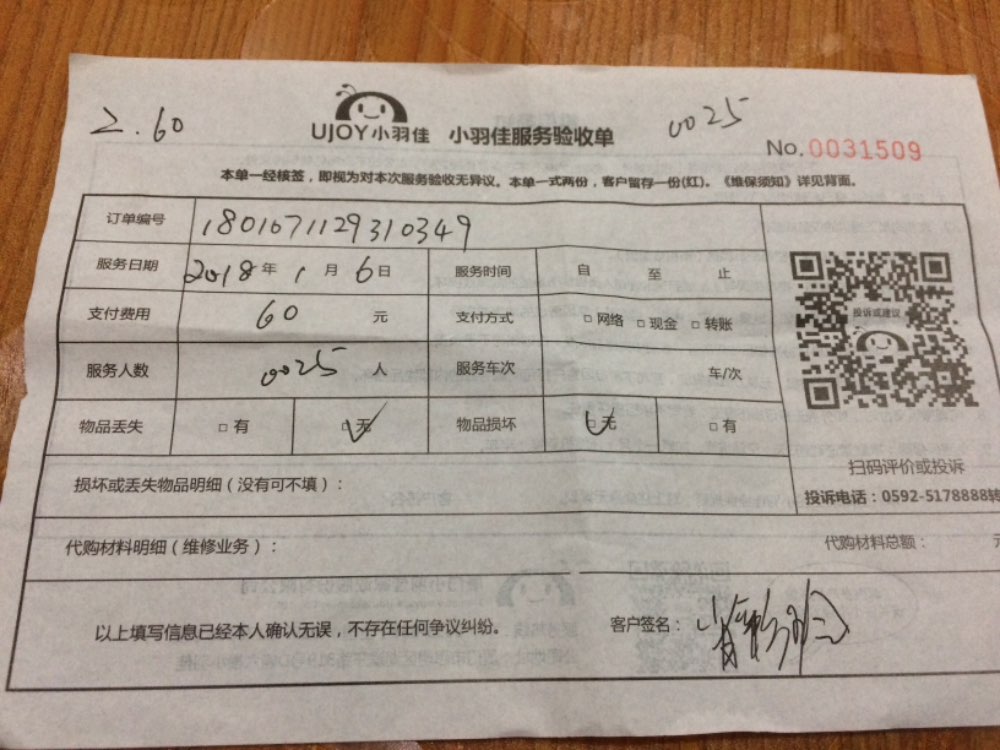 2.60
UJOY小羽佳 小羽佳服务验收单
0025
No.0031509
本单一经核签，即视为对本次服务验收无异议。本单一式两份，客户留存一份(红)。《维保须知》详见背面。
订单编号 1801671129310349
服务日期 2018年1月6日 服务时间 自 至 止
支付费用 60 元 支付方式 □网络 □现金 □转账
投诉或建议
服务人数 0025 人 服务车次 车/次
物品丢失 □有 □无 物品损坏 □无 □有
扫码评价或投诉
损坏或丢失物品明细（没有可不填）：
投诉电话：0592-5178888转
代购材料明细（维修业务）： 代购材料总额： 元
以上填写信息已经本人确认无误，不存在任何争议纠纷。 客户签名：